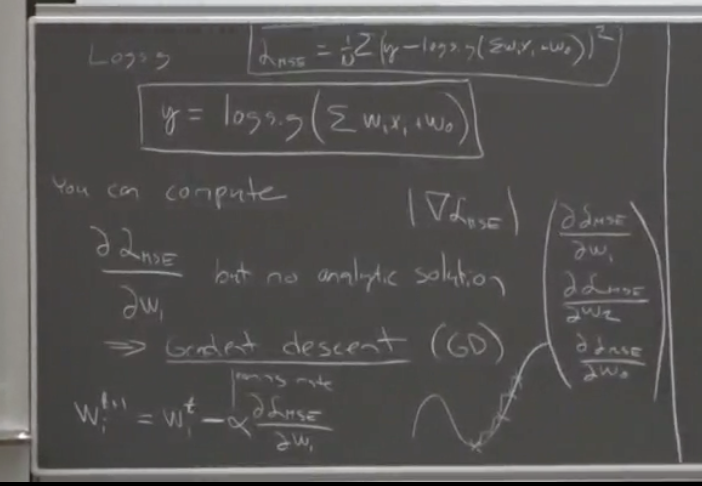 Logsig
𝓛MSE = 1/N Σ (y − logsig(Σwᵢxᵢ + w₀))²
y = logsig(Σ wᵢxᵢ + w₀)
You can compute
|∇𝓛MSE|
∂𝓛MSE/∂wᵢ but no analytic solution
(∂𝓛MSE/∂w₁
∂𝓛MSE/∂w₂
∂𝓛MSE/∂w₀)
⇒ Gradient descent (GD)
learning rate
wᵢᵗ⁺¹ = wᵢᵗ − α ∂𝓛MSE/∂wᵢ